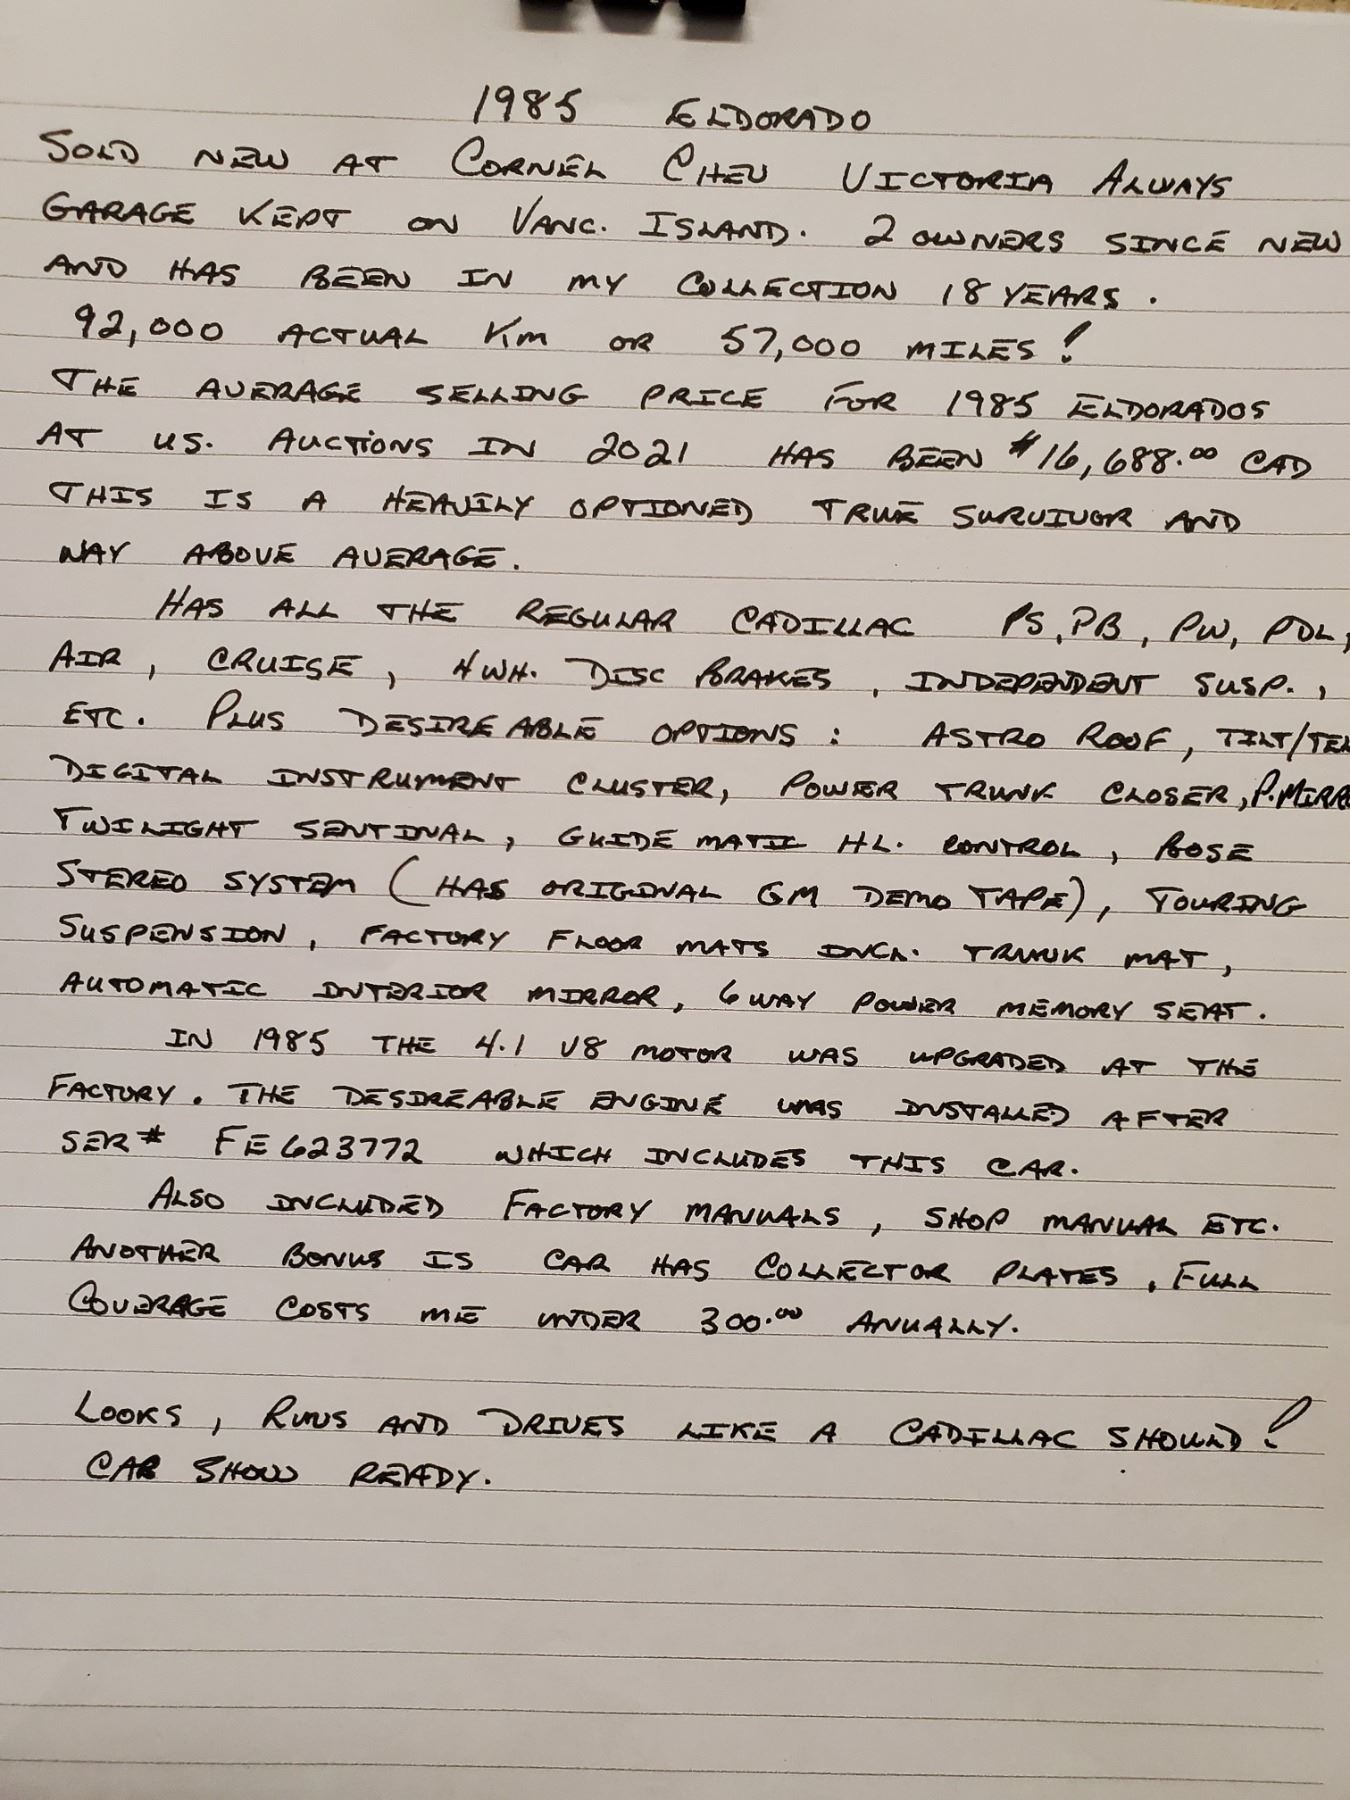 1985 ELDORADO
SOLD NEW AT CORNEL CHEV VICTORIA ALWAYS
GARAGE KEPT ON VANC. ISLAND. 2 OWNERS SINCE NEW
AND HAS BEEN IN MY COLLECTION 18 YEARS.
92,000 ACTUAL KM OR 57,000 MILES!
THE AVERAGE SELLING PRICE FOR 1985 ELDORADOS
AT US. AUCTIONS IN 2021 HAS BEEN $16,688.00 CAD
THIS IS A HEAVILY OPTIONED TRUE SURVIVOR AND
WAY ABOVE AVERAGE.
HAS ALL THE REGULAR CADILLAC PS, PB, PW, PDL,
AIR, CRUISE, 4 WH. DISC BRAKES, INDEPENDENT SUSP.,
ETC. PLUS DESIREABLE OPTIONS: ASTRO ROOF, TILT/TEL
DIGITAL INSTRUMENT CLUSTER, POWER TRUNK CLOSER, P. MIRR
TWILIGHT SENTINAL, GUIDE MATIC HL. CONTROL, BOSE
STEREO SYSTEM (HAS ORIGINAL GM DEMO TAPE), TOURING
SUSPENSION, FACTORY FLOOR MATS INCL. TRUNK MAT,
AUTOMATIC INTERIOR MIRROR, 6 WAY POWER MEMORY SEAT.
IN 1985 THE 4.1 V8 MOTOR WAS UPGRADED AT THE
FACTORY. THE DESIREABLE ENGINE WAS INSTALLED AFTER
SER# FE623772 WHICH INCLUDES THIS CAR.
ALSO INCLUDED FACTORY MANUALS, SHOP MANUAL ETC.
ANOTHER BONUS IS CAR HAS COLLECTOR PLATES, FULL
COVERAGE COSTS ME UNDER 300.00 ANUALLY.
LOOKS, RUNS AND DRIVES LIKE A CADILLAC SHOULD!
CAR SHOW READY.